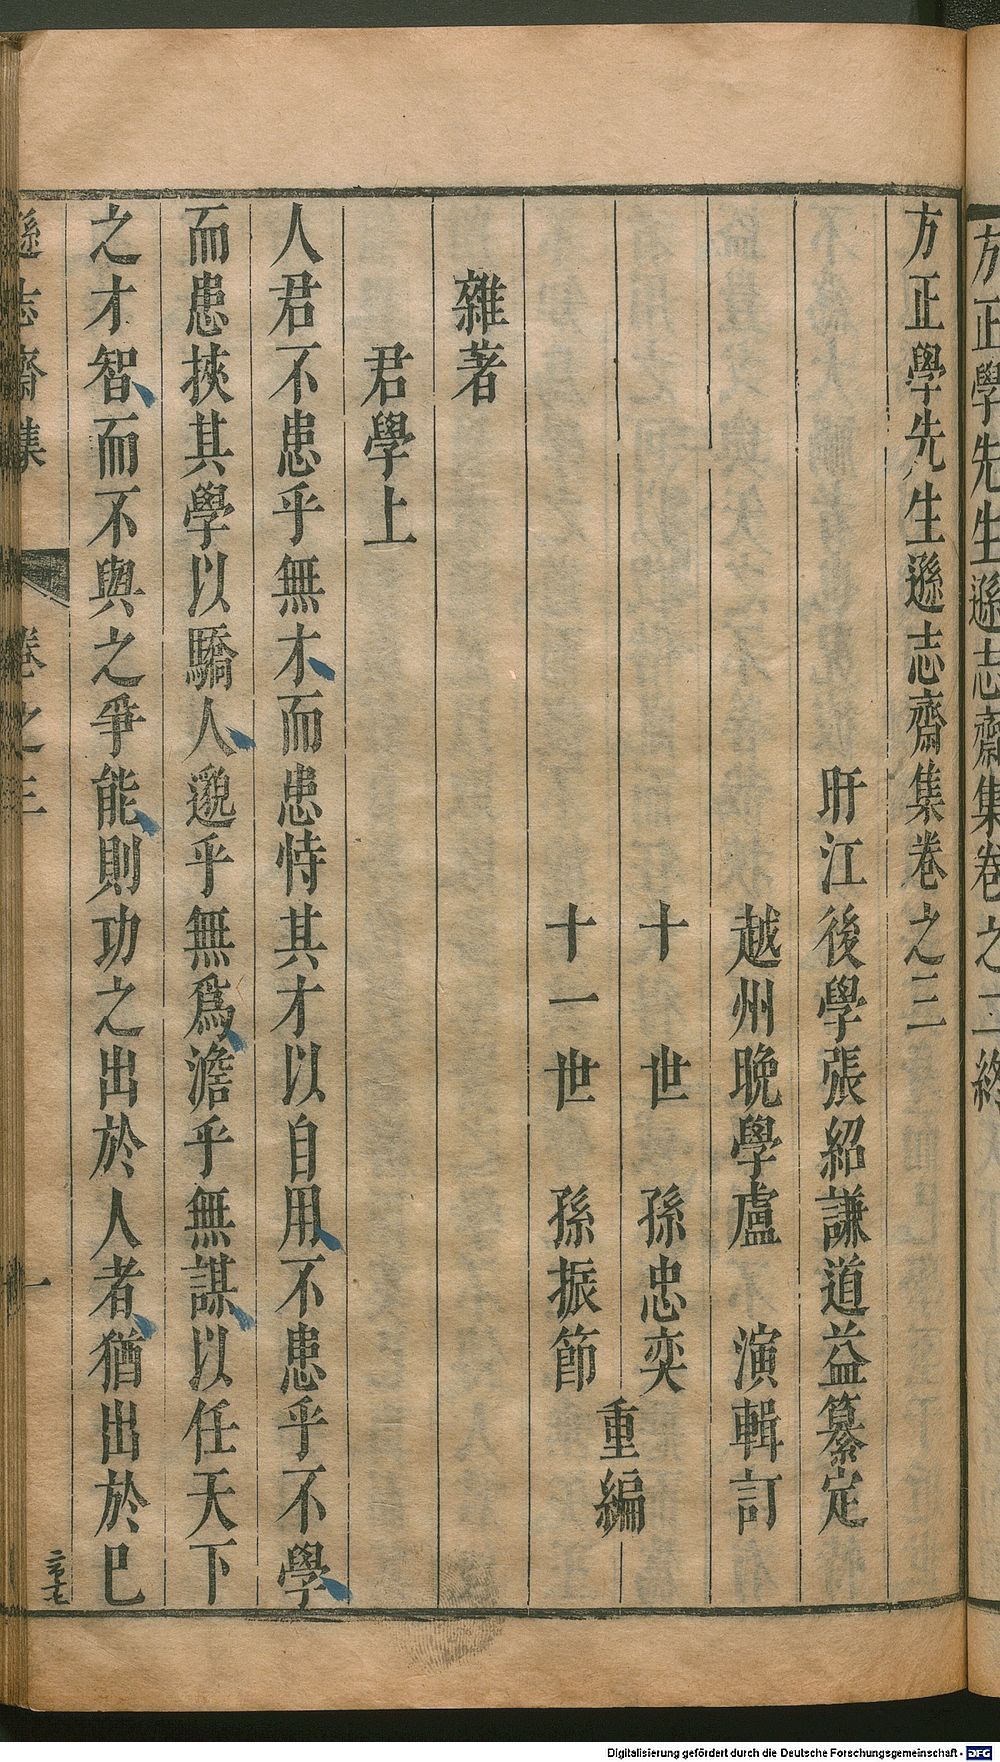 方正學先生遜志齋集卷之二終
方正學先生遜志齋集卷之三
盱江後學張紹謙道益纂定
越州晚學盧演輯訂
十世孫忠奕
十一世孫振節
重編
雜著
君學上
人君不患乎無才而患恃其才以自用不患乎不學
而患挾其學以驕人邈乎無爲澹乎無謀以任天下
之才智而不與之爭能則功之出於人者猶出於巳
遜志齋集 卷之三 一
Digitalisierung gefördert durch die Deutsche Forschungsgemeinschaft - DFG